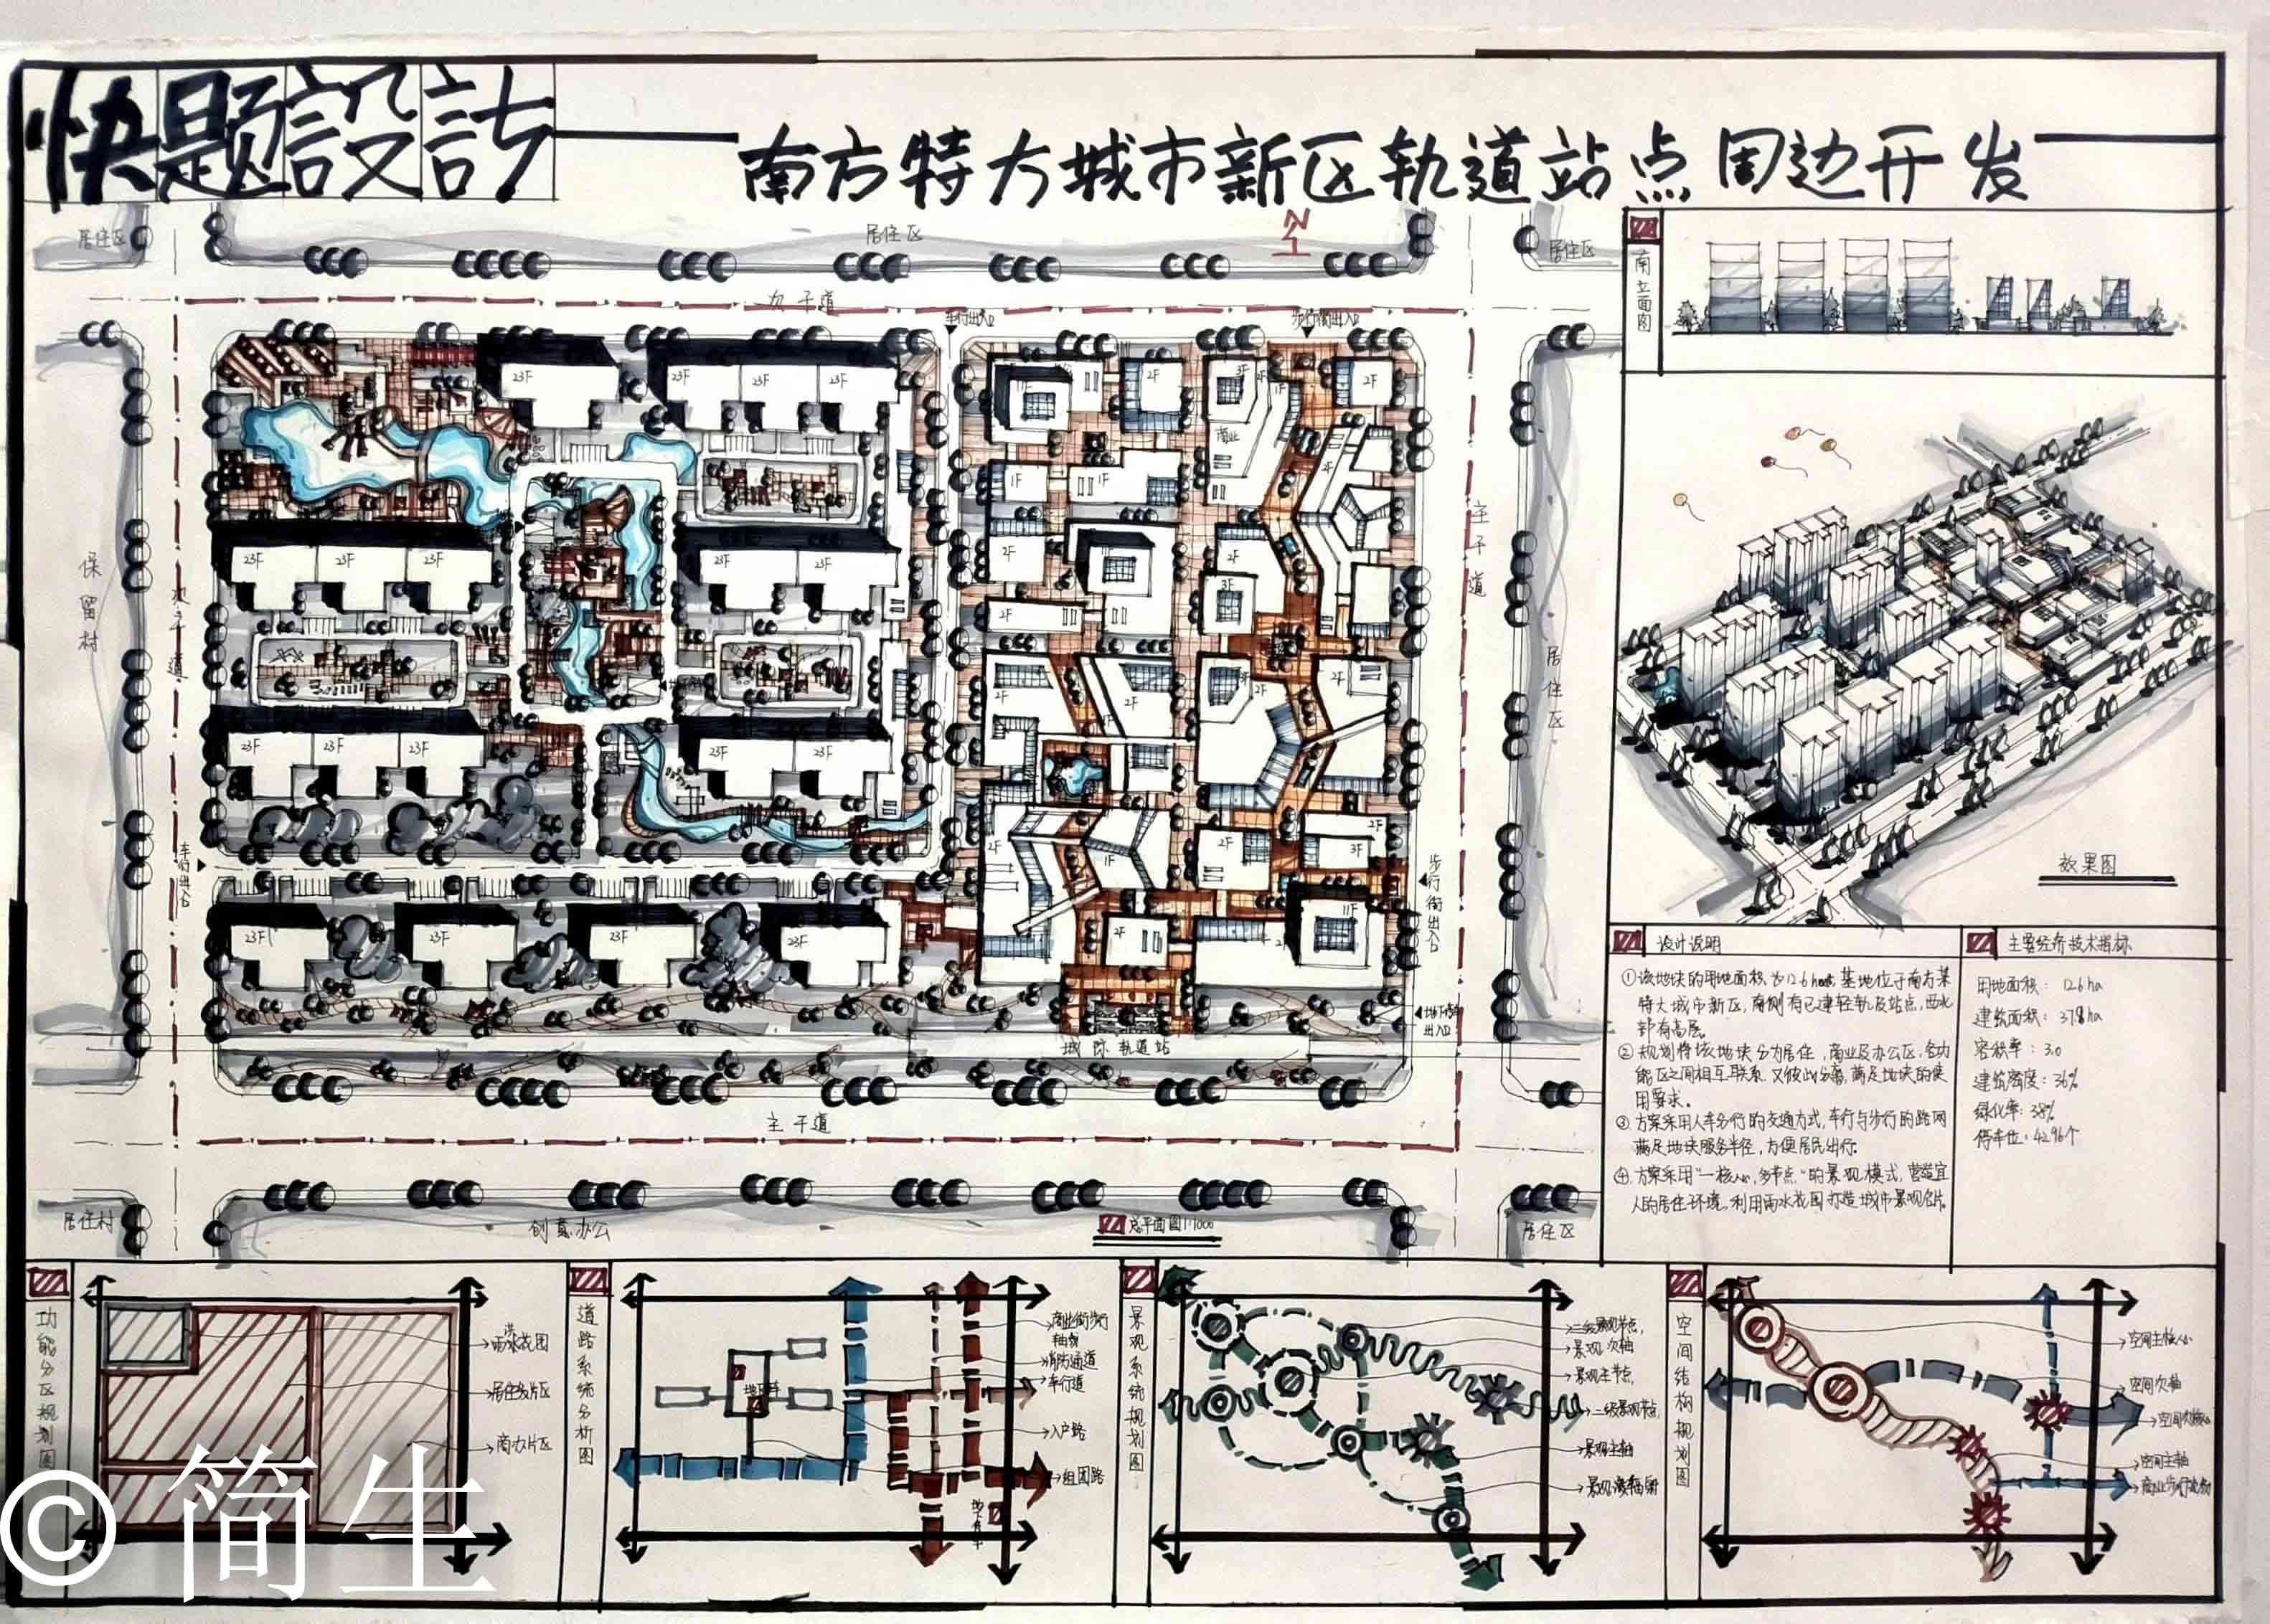 快题設计
南方特大城市新区轨道站点周边开发
居住区
居住区
居住区
N
次干道
车行出入口
步行街出入口
南立面图
23F
23F
23F
23F
2F
3F
2F
1F
2F
商业
23F
23F
23F
23F
23F
1F
1F
2F
2F
2F
2F
3F
主干道
保留村
次干道
居住区
23F
23F
23F
23F
23F
2F
2F
1F
2F
3F
2F
2F
2F
1F
2F
2F
3F
车行出入口
步行街出入口
23F
23F
23F
23F
2F
2F
11F
城际轨道站
地下停车出入口
主干道
居住村
创意办公
总平面图1:1000
居住区
效果图
设计说明
①该地块的用地面积为12.6head,基地位于南方某
特大城市新区,南侧有已建轻轨及站点,西北
都有高层。
②规划将该地块分为居住,商业及办公区,各功
能区之间相互联系又彼此分离,满足地块的使
用要求。
③方案采用人车分行的交通方式,车行与步行的路网
满足地块服务半径,方便居民出行.
④方案采用“一核心,多节点”的景观模式,营造宜
人的居住环境,利用雨水花园打造城市景观名片。
主要经济技术指标
用地面积: 12.6ha
建筑面积: 37.8ha
容积率: 3.0
建筑密度: 36%
绿化率: 38%
停车位: 4296个
功能分区规划图
雨水花园
居住片区
商办片区
道路系统分析图
地下车
商业街步行
轴线
消防通道
车行道
入户路
组团路
景观系统规划图
二级景观节点
景观次轴
景观主节点
二级景观节点
景观主轴
景观渗透辐射
空间结构规划图
空间主核心
空间次轴
空间次核心
空间主轴
商业步行轴
© 简生